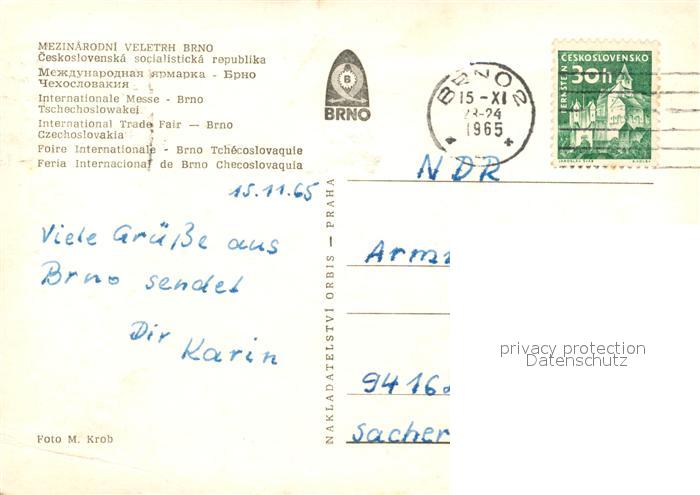 MEZINÁRODNÍ VELETRH BRNO
Československá socialistická republika
Международная ярмарка - Брно
Чехословакия
Internationale Messe - Brno
Tschechoslowakei
International Trade Fair — Brno
Czechoslovakia
Foire Internationale - Brno Tchécoslovaquie
Feria Internacional de Brno Checoslovaquia
B
BRNO
BRNO 2
15 -XI
23-24
1965
ČESKOSLOVENSKO
30h
PERNŠTEJN
NDR
15.11.65
Viele Grüße aus
Brno sendet
Dir
Karin
NAKLADATELSTVÍ ORBIS — PRAHA
Arm
9416
sacher
privacy protection
Datenschutz
Foto M. Krob